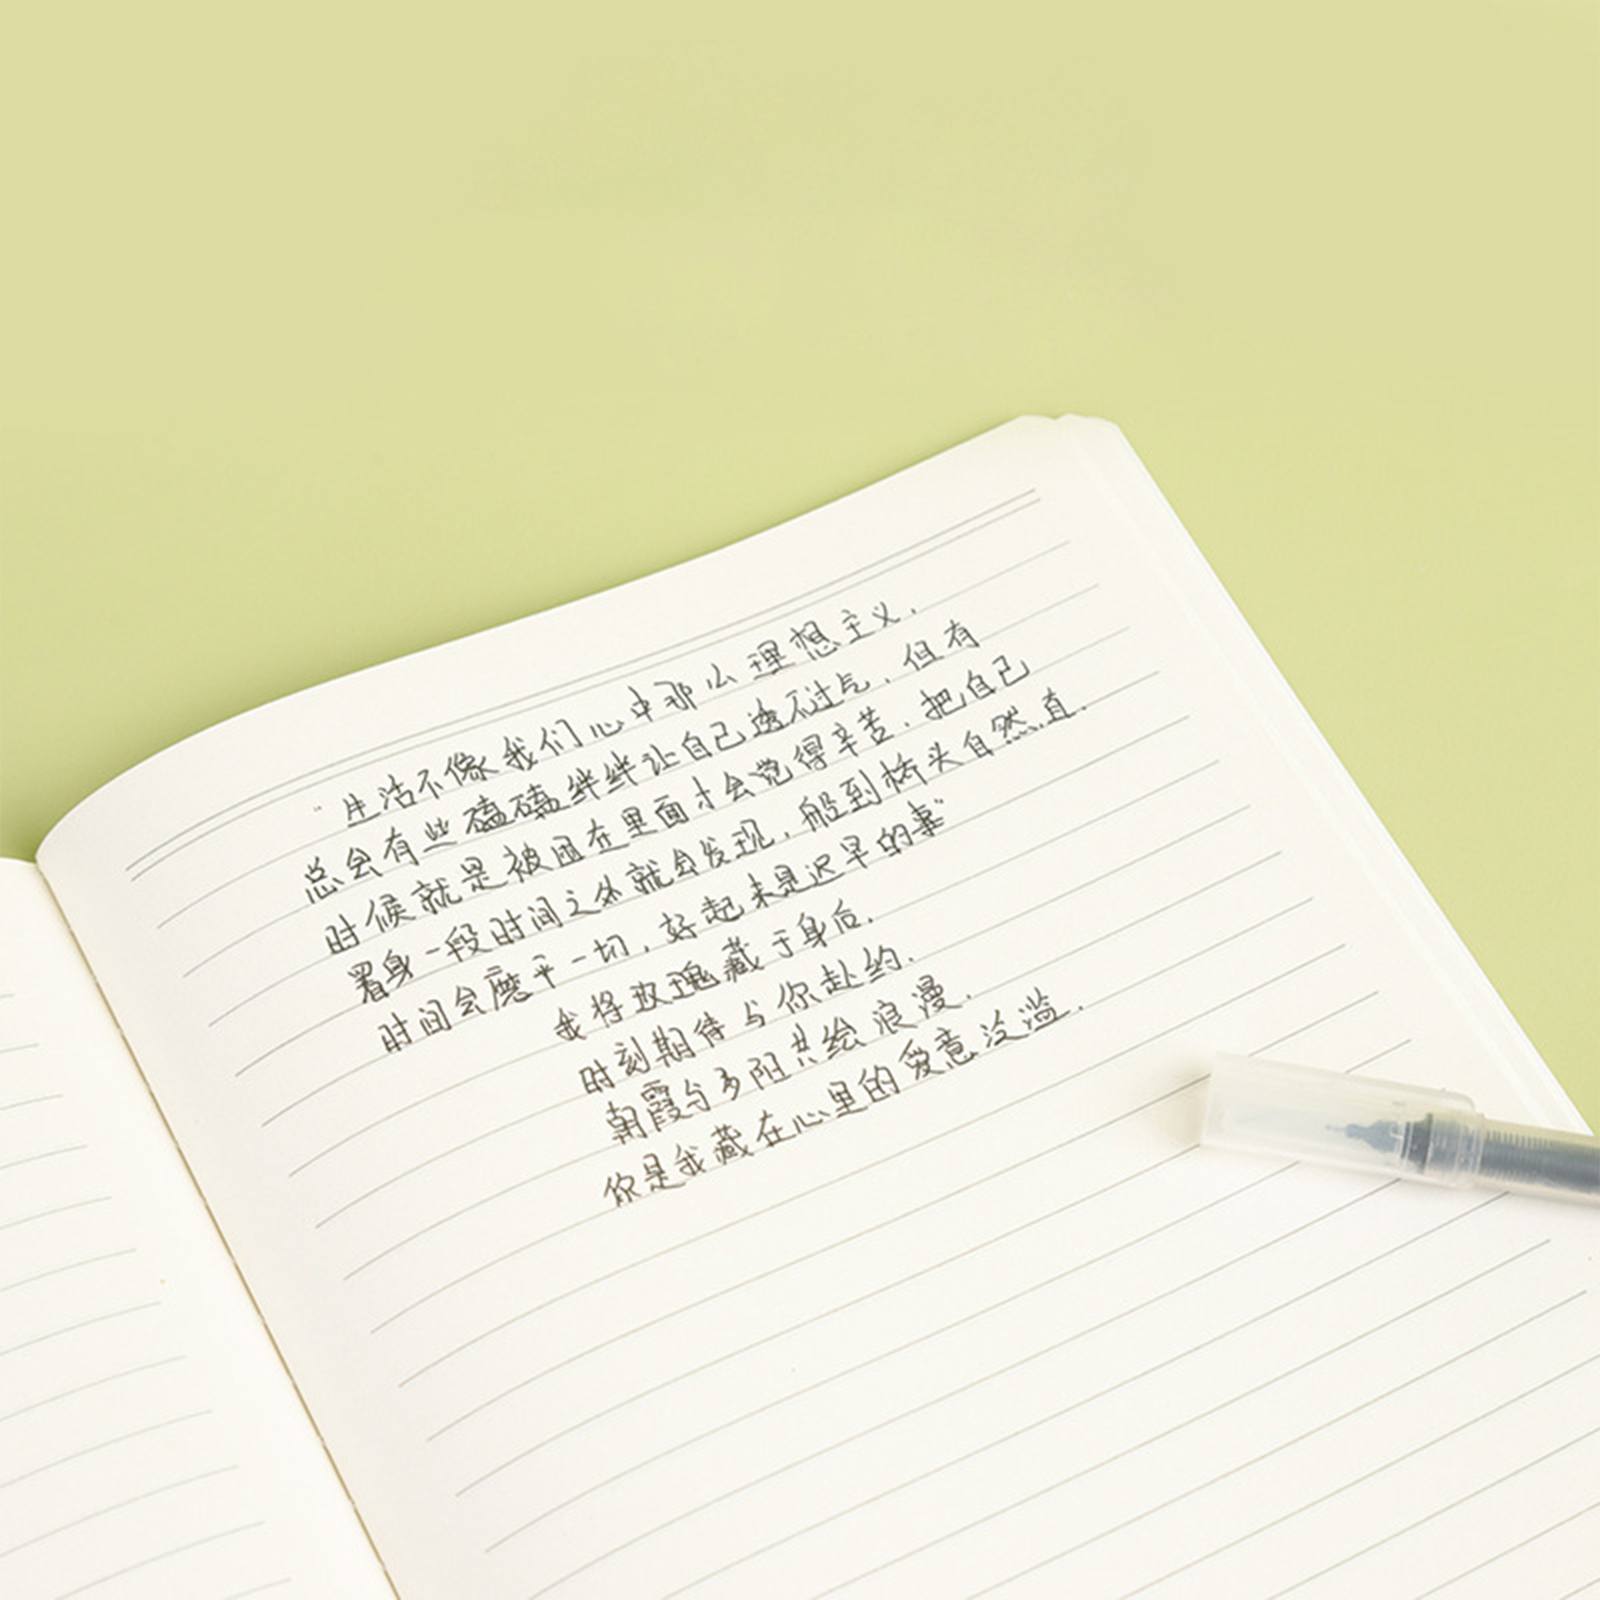 "生活不像我们心中那么理想主义,
总会有些磕磕绊绊让自己透不过气,但有
时候就是被困在里面才会觉得辛苦,把自己
置身一段时间之外就会发现,船到桥头自然直.
时间会磨平一切,好起来是迟早的事"
我将玫瑰藏于身后.
时刻期待与你赴约.
朝霞与夕阳共绘浪漫.
你是我藏在心里的爱意泛滥.